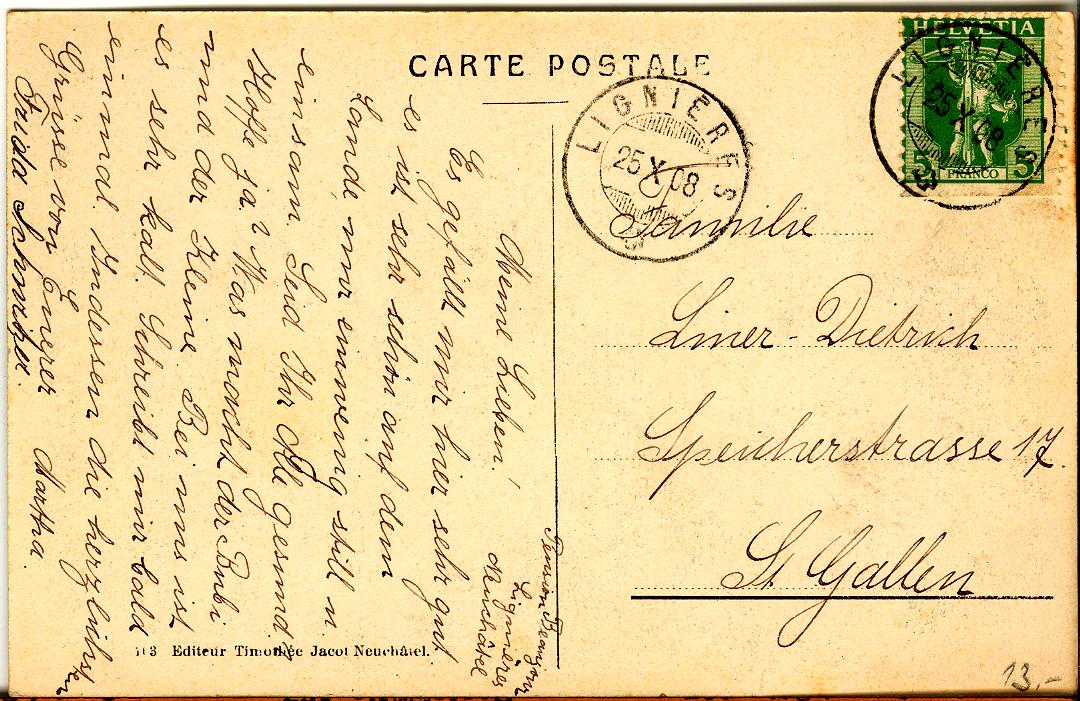 CARTE POSTALE
HELVETIA
5 FRANCO 5
LIGNIÈRES
25 X 08
LIGNIÈRES
25 X 08
Familie
Liner-Dietrich
Speicherstrasse 17.
St. Gallen
Lignières
Neuchâtel
Meine Lieben!
Es gefällt mir hier sehr gut
es ist sehr schön auf dem
Lande nur einwenig still u.
einsam. Seid Ihr Alle gesund?
Hoffe ja? Was macht der Bubi
und der Kleine. Bei uns ist
es sehr kalt. Schreibt mir bald
einmal. Indessen die herzlichsten
Grüsse von Euerer Martha.
Frida
113 Editeur Timothée Jacot Neuchâtel.
13.-